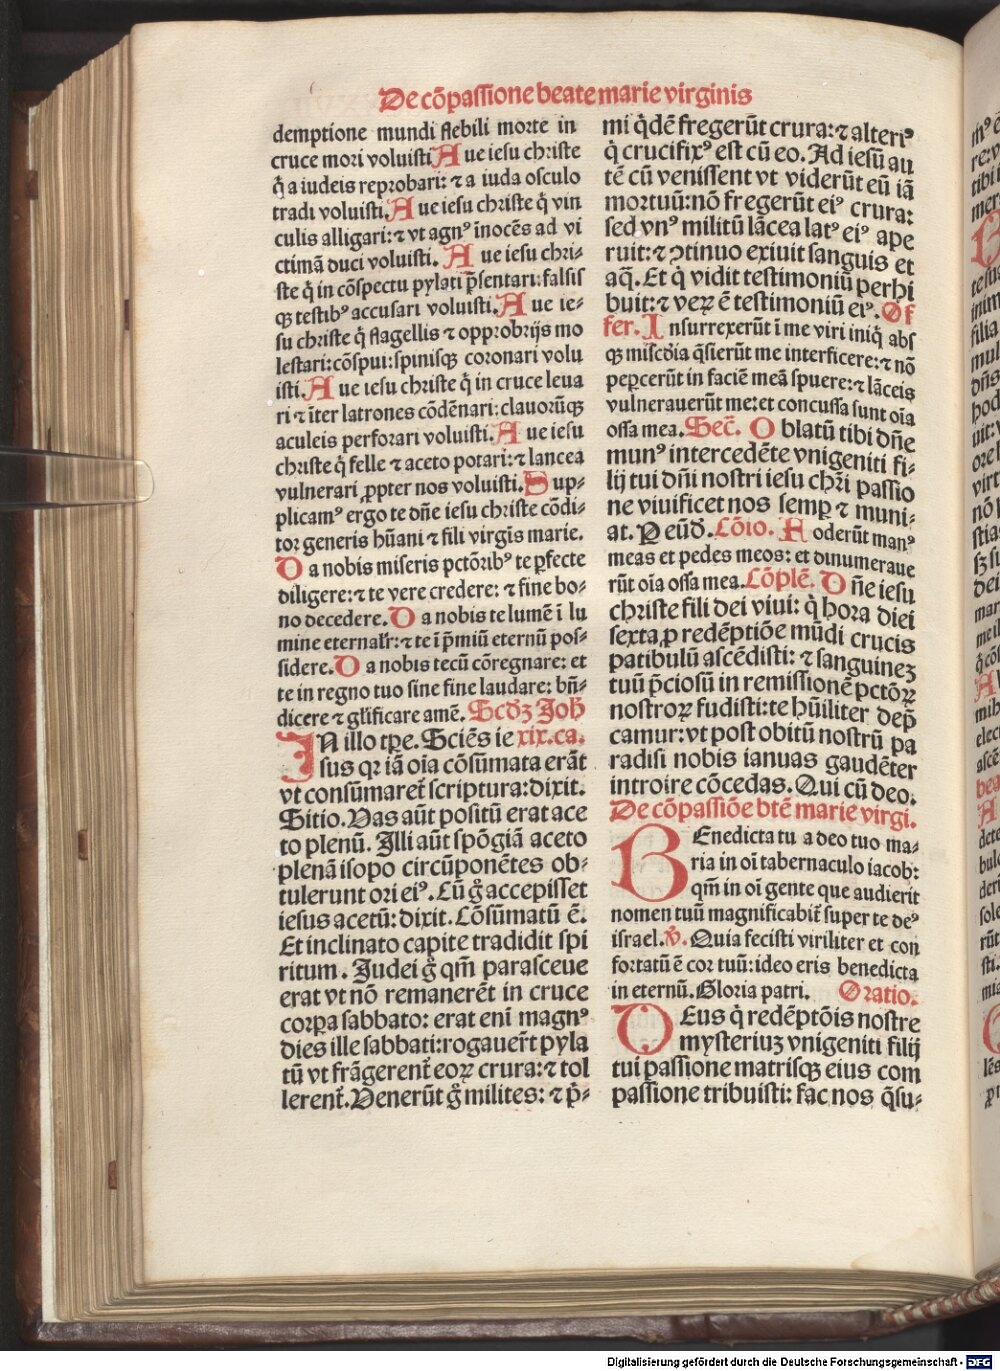 De cõpassione beate marie virginis
demptione mundi flebili morte in
cruce mori voluisti. Aue iesu christe
q̇ a iudeis reprobari: ⁊ a iuda osculo
tradi voluisti. Aue iesu christe q̇ vin
culis alligari: ⁊ vt agnꝰ inocẽs ad vi
ctimã duci voluisti. Aue iesu chri⸗
ste q̇ in cõspectu pylati p̃sentari: falsis
qꝫ testibꝰ accusari voluisti. Aue ie⸗
su christe q̇ flagellis ⁊ opprobrijs mo
lestari: cõspui: spinisqꝫ coronari volu
isti. Aue iesu christe q̇ in cruce leua
ri ⁊ ĩter latrones cõdẽnari: clauorũqꝫ
aculeis perforari voluisti. Aue iesu
christe q̇ felle ⁊ aceto potari: ⁊ lancea
vulnerari ꝓpter nos voluisti. Sup⸗
plicamꝰ ergo te dñe iesu christe cõdi⸗
tor generis hũani ⁊ fili virgĩs marie.
Da nobis miseris pctõribꝰ te ꝑfecte
diligere: ⁊ te vere credere: ⁊ fine bo⸗
no decedere. Da nobis te lumẽ ĩ lu
mine eternalr̃: ⁊ te ĩ p̃miũ eternũ pos⸗
sidere. Da nobis tecũ cõregnare: et
te in regno tuo sine fine laudare: bñ⸗
dicere ⁊ glificare amẽ. Scdꝫ Joh̃
IN illo tpe. Sciẽs ie xix.ca.
sus qꝛ iã oĩa cõsũmata erãt
vt consũmaret̃ scriptura: dixit.
Sitio. Vas aũt positũ erat ace
to plenũ. Illi aũt spõgiã aceto
plenã isopo circũponẽtes ob⸗
tulerunt ori eiꝰ. Cũ g̊ accepisset
iesus acetũ: dixit. Cõsũmatũ ẽ.
Et inclinato capite tradidit spi
ritum. Judei g̊ qm̃ parasceue
erat vt nõ remanerẽt in cruce
corpa sabbato: erat enĩ magnꝰ
dies ille sabbati: rogauer̃t pyla
tũ vt frãgerent̃ eoꝝ crura: ⁊ tol
lerent̃. Venerũt g̊ milites: ⁊ p̃⸗
mi q̇dẽ fregerũt crura: ⁊ alteriꝰ
q̇ crucifixꝰ est cũ eo. Ad iesũ au
tẽ cũ venissent vt viderũt eũ iã
mortuũ: nõ fregerũt eiꝰ crura:
sed vnꝰ militũ lãcea latꝰ eiꝰ ape
ruit: ⁊ ꝯtinuo exiuit sanguis et
aq̃. Et q̇ vidit testimoniũ perhi
buit: ⁊ veꝝ ẽ testimoniũ eiꝰ. Of
fer. Insurrexerũt ĩ me viri iniq̇ abs
qꝫ miscdĩa q̃sierũt me interficere: ⁊ nõ
pepcerũt in faciẽ meã spuere: ⁊ lãceis
vulnerauerũt me: et concussa sunt oĩa
ossa mea. Secr̃. Oblatũ tibi dñe
munꝰ intercedẽte vnigeniti fi⸗
lij tui dñi nostri iesu chr̃i passio
ne viuificet nos semp ⁊ muni⸗
at. P eũd̃. Cõio. Foderũt manꝰ
meas et pedes meos: et dinumeraue
rũt oĩa ossa mea. Cõplẽ. Dñe iesu
christe fili dei viui: q̇ hora diei
sexta ꝓ redẽptiõe mũdi crucis
patibulũ ascẽdisti: ⁊ sanguineꝫ
tuũ p̃ciosũ in remissionẽ pctõꝝ
nostroꝝ fudisti: te hũiliter dep̃
camur: vt post obitũ nostrũ pa
radisi nobis ianuas gaudẽter
introire cõcedas. Qui cũ deo.
De cõpassiõe btẽ marie virgi.
BEnedicta tu a deo tuo ma⸗
ria in oĩ tabernaculo iacob:
qm̃ in oĩ gente que audierit
nomen tuũ magnificabit̃ super te deꝰ
israel. ℣. Quia fecisti viriliter et con
fortatũ ẽ cor tuũ: ideo eris benedicta
in eternũ. Gloria patri. Oratio.
DEus q̇ redẽptõis nostre
mysteriuꝫ vnigeniti filij
tui passione matrisqꝫ eius com
passione tribuisti: fac nos q̃su⸗
Digitalisierung gefördert durch die Deutsche Forschungsgemeinschaft - DFG